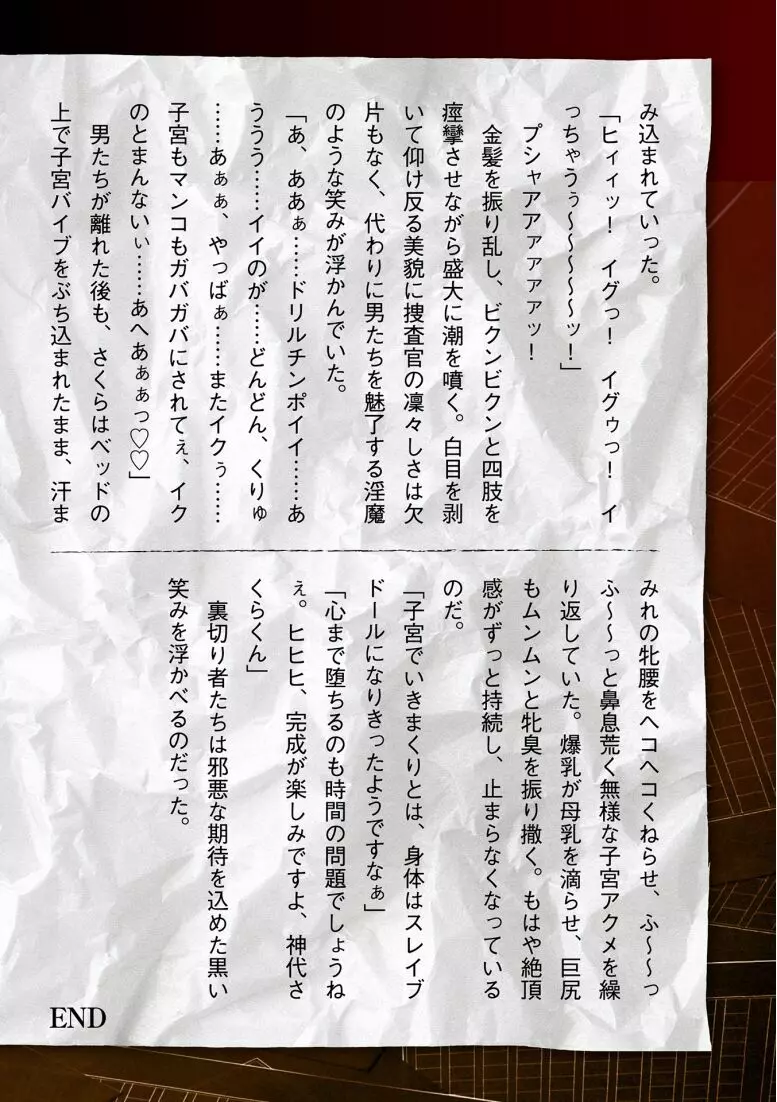 み込まれていった。
「ヒィィッ！　イグっ！　イグゥっ！　イ
っちゃうぅ～～～～～ッ！」
プシャアアァァァァッ！
金髪を振り乱し、ビクンビクンと四肢を
痙攣させながら盛大に潮を噴く。白目を剥
いて仰け反る美貌に捜査官の凛々しさは欠
片もなく、代わりに男たちを魅了する淫魔
のような笑みが浮かんでいた。
「あ、ああぁ……ドリルチンポイイ……あ
ううう……イイのが……どんどん、くりゅ
……あぁぁ、やっばぁ……またイクぅ……
子宮もマンコもガバガバにされてぇ、イク
のとまんないぃ……あへあぁぁっ♡♡」
男たちが離れた後も、さくらはベッドの
上で子宮バイブをぶち込まれたまま、汗ま
みれの牝腰をヘコヘコくねらせ、ふ～～っ
ふ～～っと鼻息荒く無様な子宮アクメを繰
り返していた。爆乳が母乳を滴らせ、巨尻
もムンムンと牝臭を振り撒く。もはや絶頂
感がずっと持続し、止まらなくなっている
のだ。
「子宮でいきまくりとは、身体はスレイブ
ドールになりきったようですなぁ」
「心まで堕ちるのも時間の問題でしょうね
ぇ。ヒヒヒ、完成が楽しみですよ、神代さ
くらくん」
裏切り者たちは邪悪な期待を込めた黒い
笑みを浮かべるのだった。
END